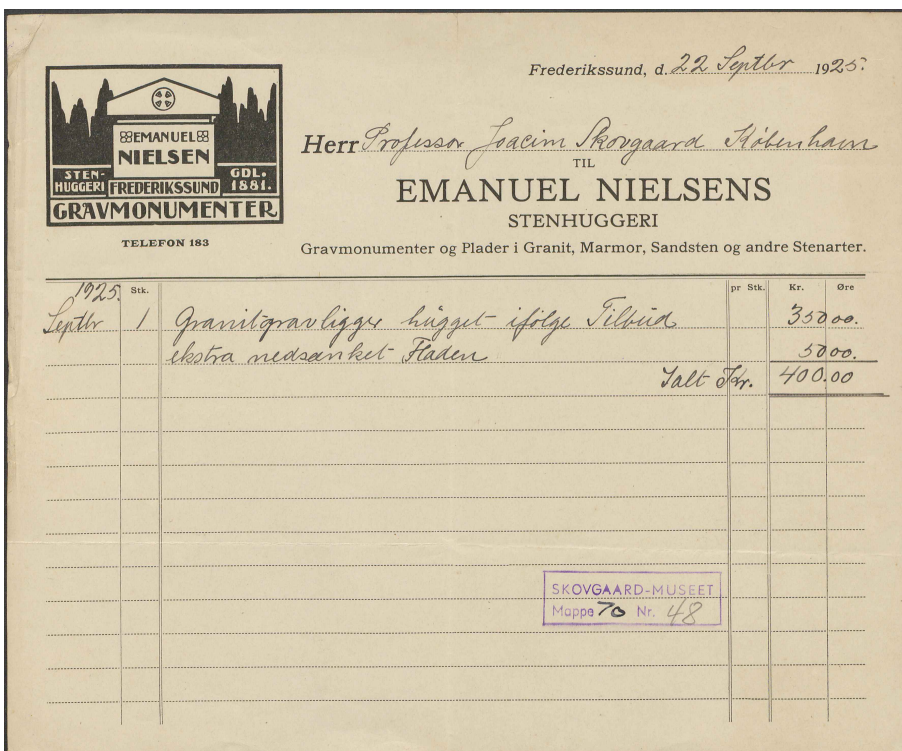 Frederikssund, d. 22 Septbr 1925.
EMANUEL
NIELSEN
STEN-
HUGGERI
FREDERIKSSUND
GDL.
1881.
GRAVMONUMENTER
TELEFON 183
Herr Professor Joacim Skovgaard København
TIL
EMANUEL NIELSENS
STENHUGGERI
Gravmonumenter og Plader i Granit, Marmor, Sandsten og andre Stenarter.
1925. Stk. pr Stk. Kr. Øre
Septbr 1 Granitgravligger hugget ifølge Tilbud 350 00.
ekstra nedsænket Fladen 50 00.
Ialt Kr. 400.00
SKOVGAARD-MUSEET
Mappe 70 Nr. 48